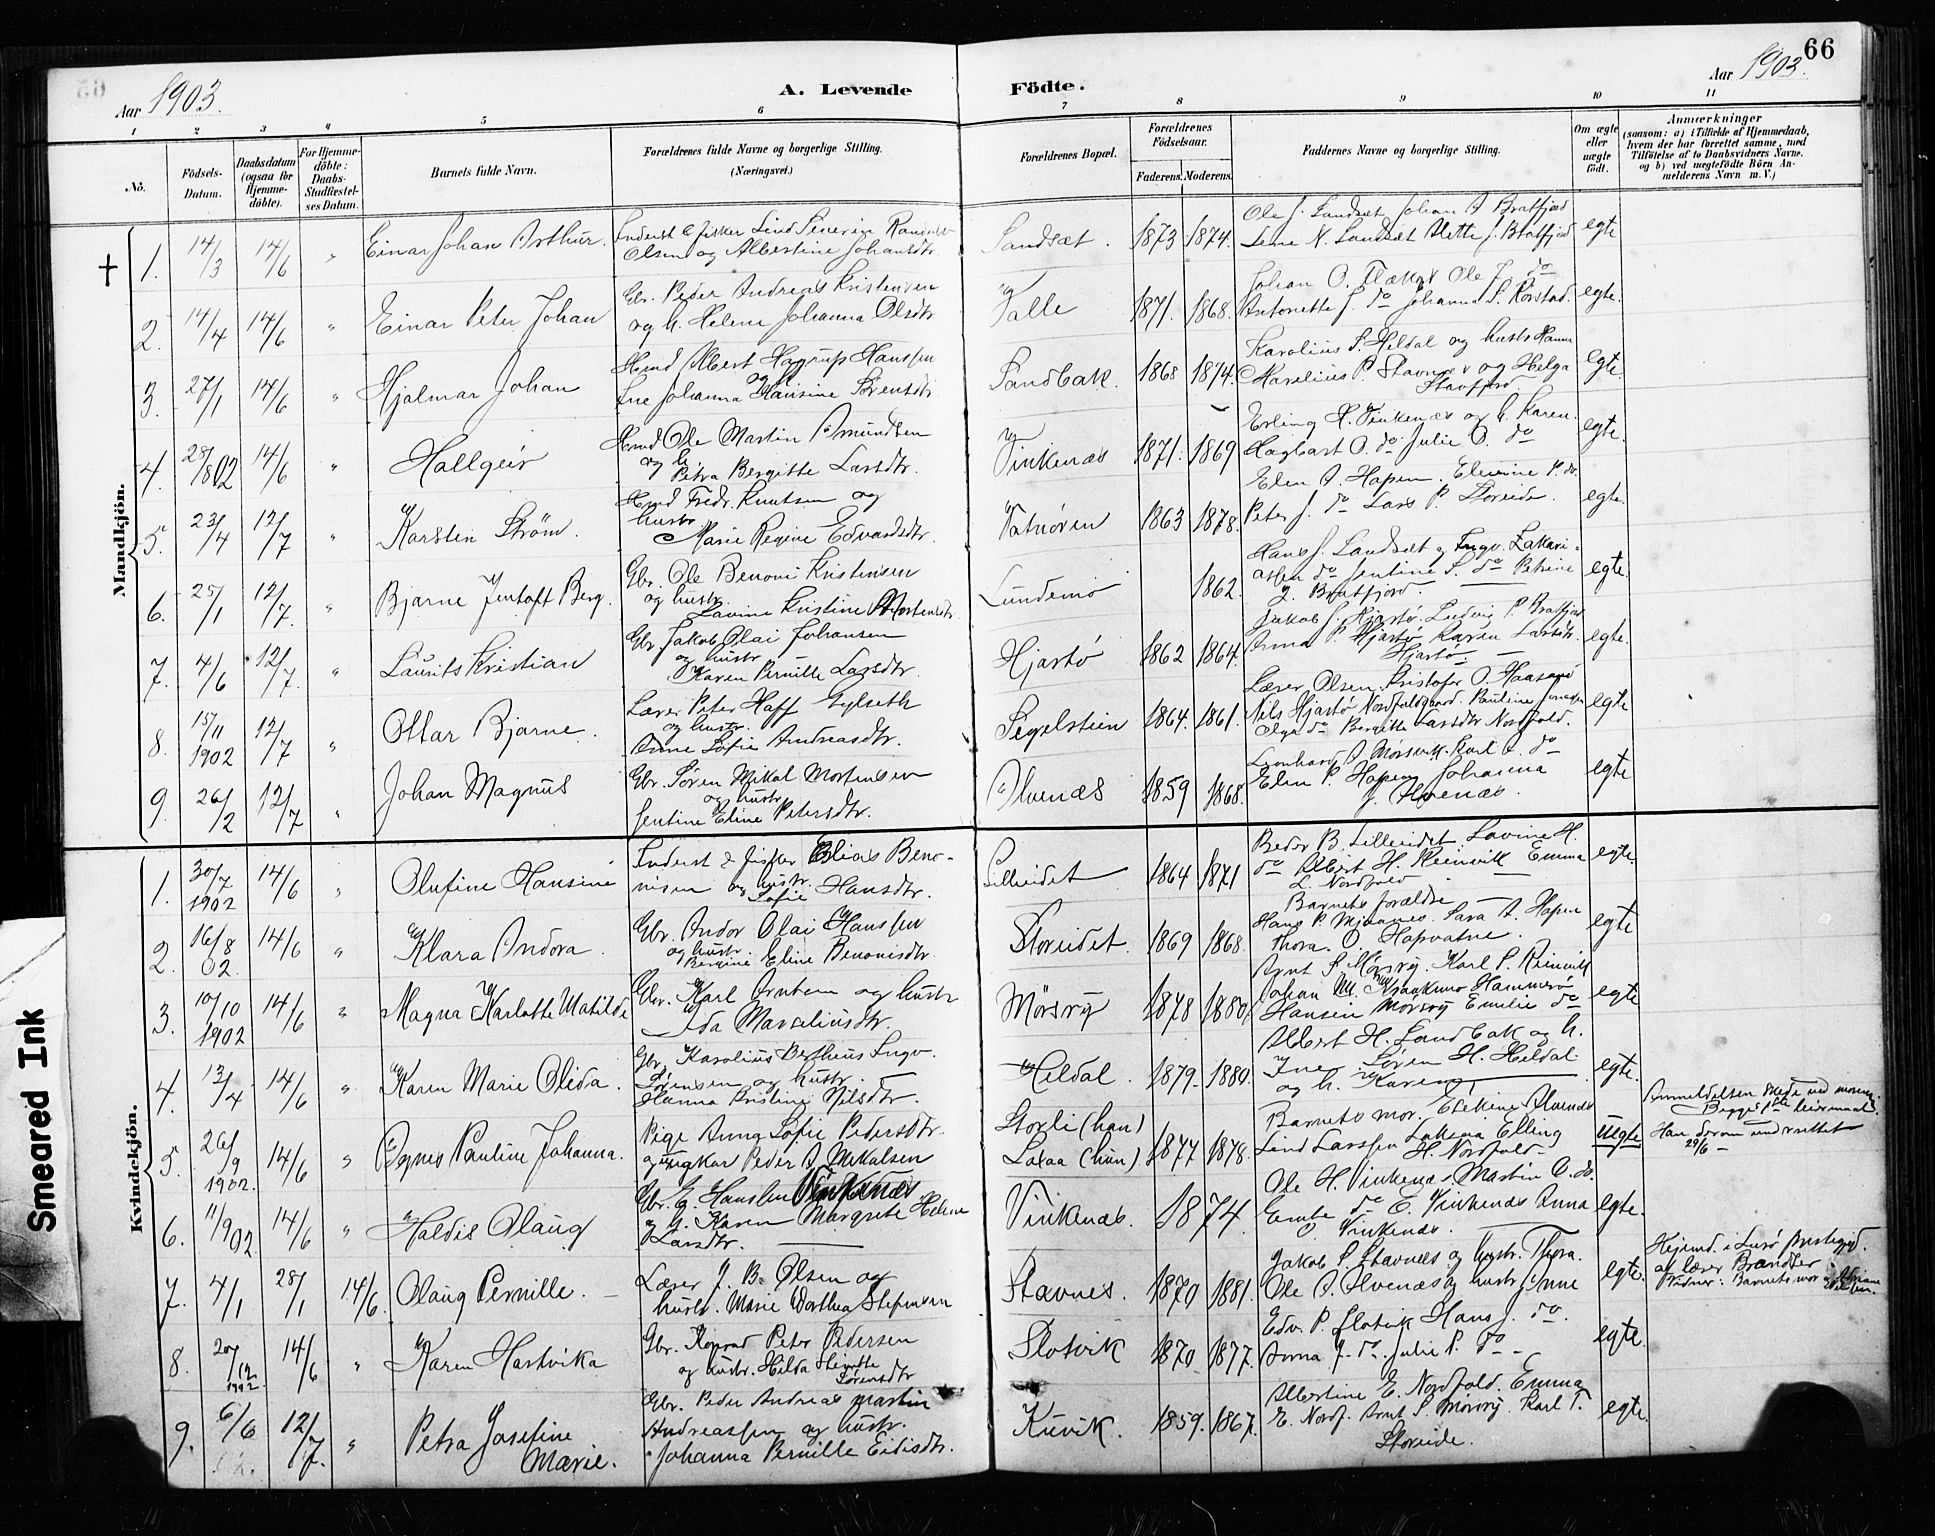 66
Aar 1903.
A. Levende
Födte.
Aar 1903.
1 2 3 4 5 6 7 8 9 10 11
No.
Födsels-
Datum.
Daabsdatum
(ogsaa for
Hjemme-
döbte).
For Hjemme-
döbte:
Daabs-
Stadfæstel-
ses Datum.
Barnets fulde Navn.
Forældrenes fulde Navne og borgerlige Stilling.
(Næringsvei.)
Forældrenes Bopæl.
Forældrenes
Födselsaar.
Faderens. Moderens.
Faddernes Navne og borgerlige Stilling.
Om ægte
eller
uægte
födt.
Anmærkninger
(saasom: a) i Tilfælde af Hjemmedaab,
hvem der har forrettet samme, med
Tilföielse af to Daabsvidners Navne.
og b) ved uægtefödte Börn An-
melderens Navn m. V.)
Mandkjön.
1. 14/3 14/6 " Einar Johan Arthur.
Olsen og Albertine Johansdtr.
Sandsæt. 1873 1874.
Ole J. Sandsæt Johan A Bratfjord
Lene N. Sandsæt Alette J. Bratfjord
egte
2. 14/4 14/6 " Einar Peter Johan
Gbr. Peder Andreas Kristensen
og h. Helene Johanna Olsdtr
Valle 1871. 1868.
Antonette J. do Johanna S. Korstad.
egte.
3. 27/1 14/6 " Hjalmar Johan
Hmd Albert Hagrup Hanssen
og h.
Ine Johanna Hansine Sørensdtr.
Sandbak. 1868 1874.
Karolius S. Heldal og hustr Hanna
Marelius P. Stavnes og Helga
egte.
4. 28/8 02 14/6 " Hallgeir
Hmd Ole Martin Amundsen
og h.
Petra Bergitte Larsdtr.
Vinkenæs 1871. 1869
Erling H. Vinkenæs og h. Karen.
Hagbart O. do Julie O. do
egte.
5. 23/4 12/7 " Karsten Strøm.
Hmd Fredr. Knutsen og
hustr.
Marie Regine Edvardsdtr.
Vatnøren 1863 1878.
Elen A. Hopen.
Peter J. do Lars P. Storeide.
egte.
6. 25/1 12/7. " Bjarne Jentoft Berg.
Gbr. Ole Benoni Kristensen
og hustr.
Lavine Kristine Mortensdtr.
Lundemo 1862.
Hans J. Landsæt og Ingv. Zakari-
assen do Jentine S. do Petrine
J. Bratfjord.
egte.
7. 4/6 12/7. " Laurits Kristian
Gbr. Jakob Olai Johansen
og hustr
Karen Pernille Larsdtr.
Hjartø 1862 1864.
Jakob J. Hjartø. Ludvig P. Bratfjord
Anna P. Hjartø Karen Larsdtr.
Hjartø.
egte.
8. 15/11 1902 12/7 " Ottar Bjarne.
Lærer Peter Hoff Gylseth
og hustr.
Anne Sofie Andreasdtr.
Segelstein 1864. 1861.
Lærer Olsen. Kristofer O.
Olga do Bergitte Larsdtr Nordfold.
egte
9. 26/2 12/7 " Johan Magnus
Gbr. Søren Mikal Mortensen
og hustr
Jentine Eline Petersdtr.
Alvenæs 1859 1868.
Leonhard A Mørsvik. Karl A. do
Elen P. Hopen Johanna
J. Alvenæs.
egte
Kvindekjön.
1. 30/7 1902 14/6 " Olufine Hansine
Inderst & fisker Elias Beno-
nisen og hustr. Hansdtr.
Sofie
Lilleeidet 1864 1871
Peder B. Lilleeidet Lavine H.
do Albert H. Reinvik Emma
L. Nordfold
egte
2. 16/8 02. 14/6 " Klara Andora.
Gbr. Andor Olai Hanssen
og hustr
Bergine Eline Benonisdtr.
Storeidet 1869 1868.
Barnets forældre
Hans P. Mjaanes. Sara A. Hopen
Thora. O. Hopvatne.
egte
3. 10/10 1902 14/6 " Magna Karlotte Matilde
Gbr. Karl Arntsen og hustr
Ida Marseliusdtr.
Mørsry 1878 1880.
Arnt S. Mørsry. Karl P. Reinvik
Hansen Mørsry Emilie do
egte
4. 13/4 14/6 " Karen Marie Olida.
Gbr. Karolius Bertheus Ingv.
Sørensen og hustr.
Hanna Kristine Nilsdtr.
Heldal. 1879. 1880.
Albert H. Sandbak og h.
Ine. Søren H. Heldal
og h. Karen
egte.
5. 26/9 1902. 14/6 " Agnes Pauline Johanna.
Pige Anna Sofie Pedersdtr.
og Ungkar Peder A Mikalsen
Storli (han)
Laxaa (hun) 1877 1878.
Barnets mor. Alvenæs
H. Nordfold
Uegte
Anmeldelsen skede ved moren.
Begges 1ste leiermaal.
Han derom underrettet
29/6
6. 11/9 02. 14/6 " Haldis Olaug
Gbr. E. Hansen Vinkenæs
og h. Karen Margrete Helene
Larsdtr.
Vinkenæs. 1874.
Ole H. Vinkenæs Martin O. do.
do E. Vinkenæs Anna
O. Vinkenæs.
egte.
7. 4/1 28/1 14/6. Olaug Pernille.
Lærer J. B. Olsen og
hustr. Marie Dorthea Stefensen
Stavnes. 1870 1881.
Jakob P. Stavnes og hustr. Thora.
Ole A. Alvenæs og hustr Anne
egte.
Hjemd. i Lurø prestegjd.
af lærer Brandter.
Vidner: Barnets mor og
8. 20/12 1902. 14/6 " Karen Hartvika
Gbr. Konrad Peter Pedersen
og hustr. Hilda
Sørensdtr
Slotvik 1870 1877.
Edv. P. Slotvik Hans J. do.
Anna J. do. Julie P. do
egte.
9. 6/6 12/7. " Petra Josefine
Marie.
Gbr. Peder Andreas Martin
Andreassen og hustr.
Johanna Pernille Eidisdtr.
Kuvik. 1859. 1867.
Albertine E. Nordfold. Emma
E. Nordf. Arnt S. Mørsry. Karl T.
Storeide.
egte.
Smeared Ink